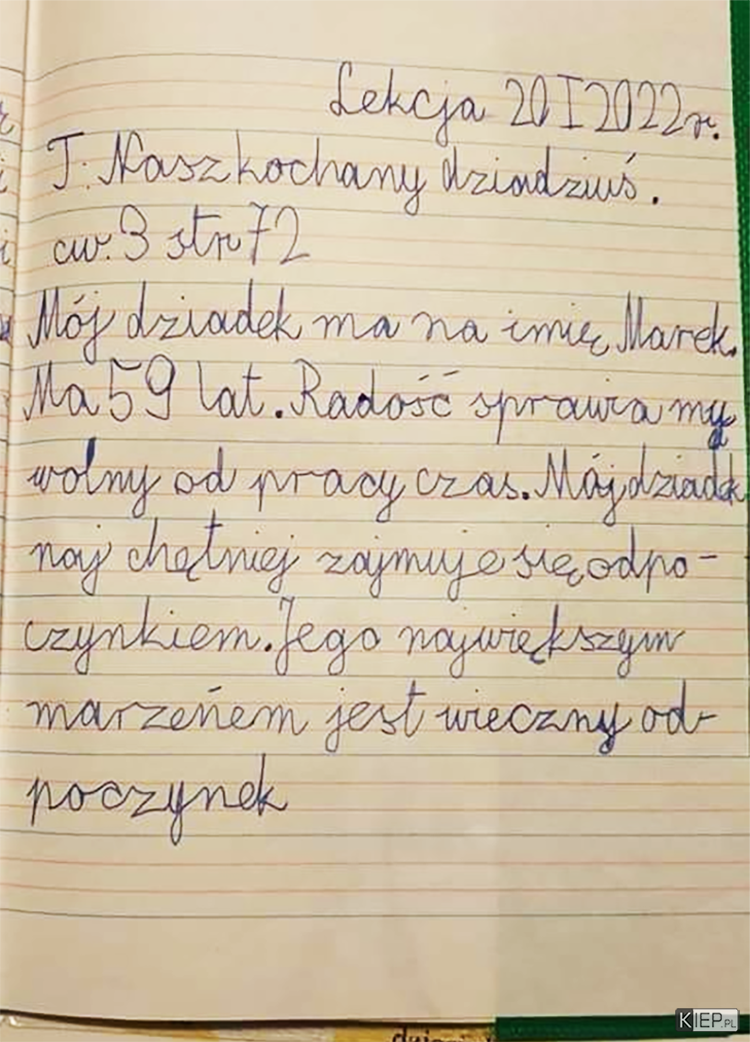 Lekcja 20 I 2022r.
T: Nasz kochany dziadziuś.
ćw. 3 str 72
Mój dziadek ma na imię Marek.
Ma 59 lat. Radość sprawia my
wolny od pracy czas. Mój dziadek
naj chętniej zajmuje się odpo-
czynkiem. Jego największym
marzeńem jest wieczny od-
poczynek
KIEP.PL